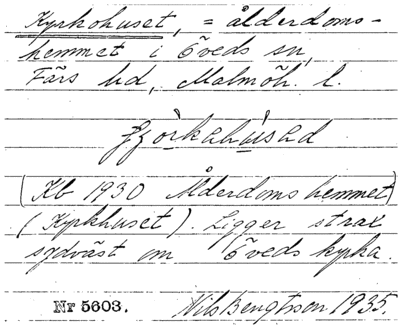 Kyrkohuset, = ålderdoms-
hemmet i Öveds sn,
Färs hd, Malmöh. l.
(Kb 1930 Ålderdomshemmet)
(Kyrkhuset). Ligger strax
sydväst om Öveds kyrka.
Nr 5603. Nils Bengtsson 1935.